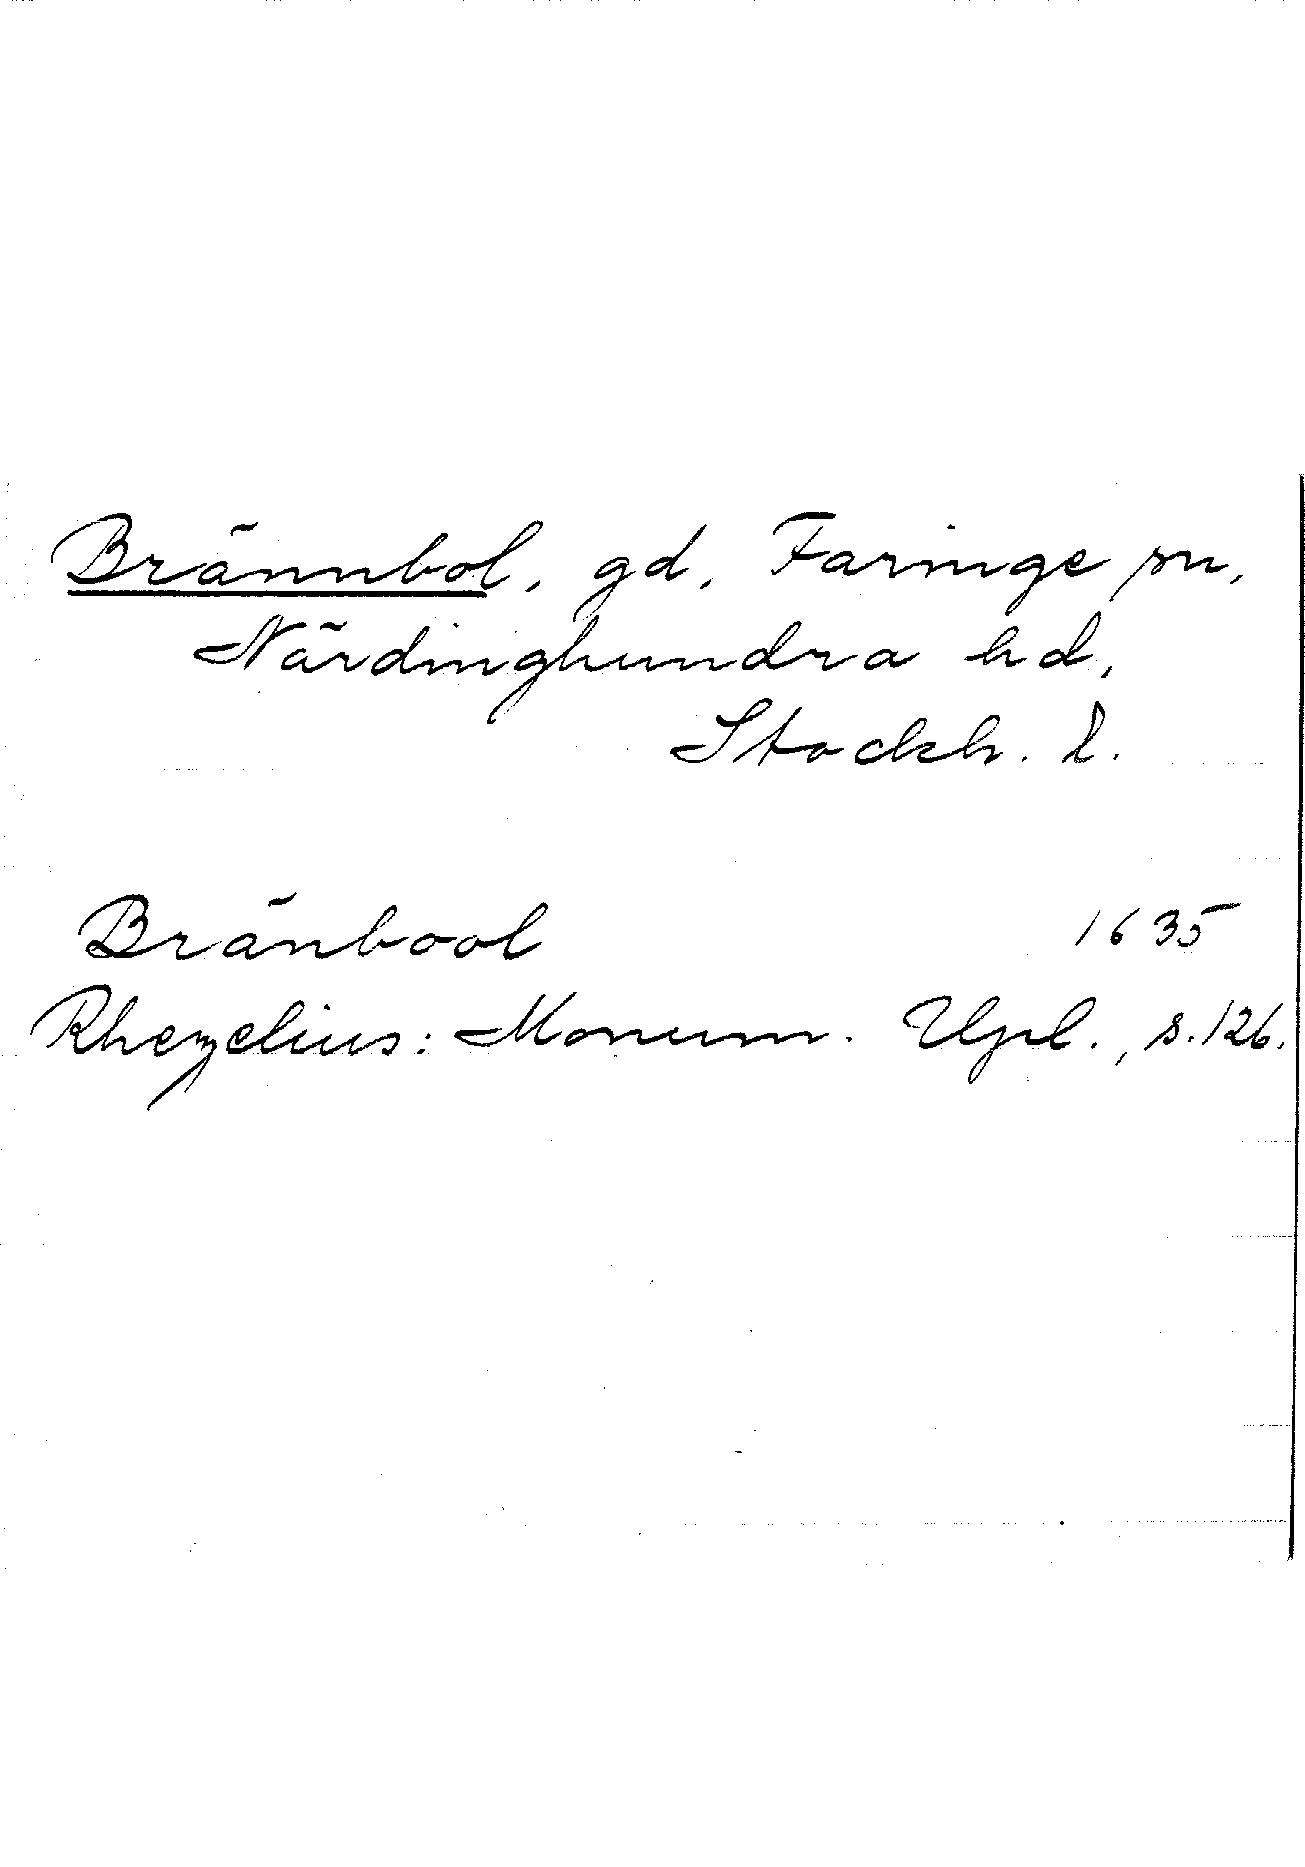 Brännbol, gd, Faringe sn,
Närdinghundra hd,
Stockh. l.
Bränbool 1635
Rhezelius: Monum. Upl., s. 126.